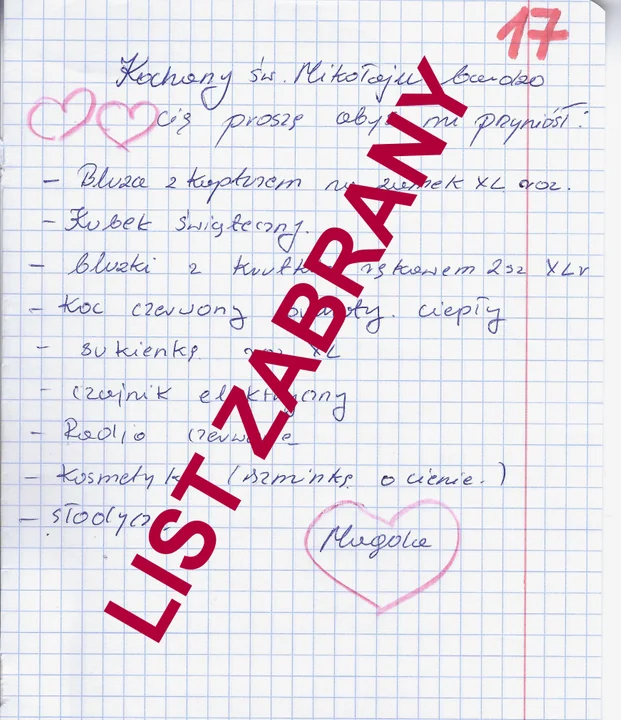 17
Kochany św. Mikołaju bardzo
cię proszę aby mi przyniósł:
- Bluza z kapturem na zamek XL roz.
- Kubek świąteczny.
- bluzki z krutk rękawem 2sz XL r
- Koc czerwony ciepły
- sukienkę roz XL
- czajnik elektryczny
- Radjo czerwone
- Kosmetyki (szminkę o cienie.)
- słodycze
Magola
LIST ZABRANY